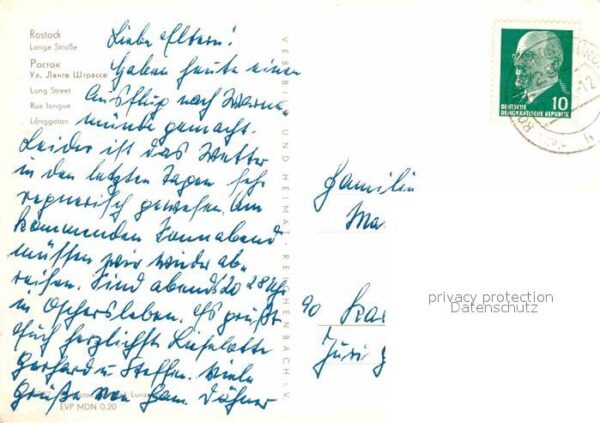 Rostock
Lange Straße
Росток
Ул. Ланге Штрассе
Long Street
Rue longue
Långgatan
Liebe Eltern!
Haben heute einen
Ausflug nach Warne-
münde gemacht.
Leider ist das Wetter
in den letzten Tagen sehr
regnerisch gewesen. Am
kommenden Sonnabend
müssen wir wieder ab-
reisen. Sind abends 20 28 Uhr
in Oschersleben. Es grüßt
Euch herzlichst Liselotte
Gerhard u. Steffen. Viele
Grüße von Fam. Döhner
EVP MDN 0,20
VEB BILD UND HEIMAT · REICHENBACH i. V.
DEUTSCHE
DEMOKRATISCHE REPUBLIK
10
Familie
Ma
90 Kar
privacy protection
Datenschutz